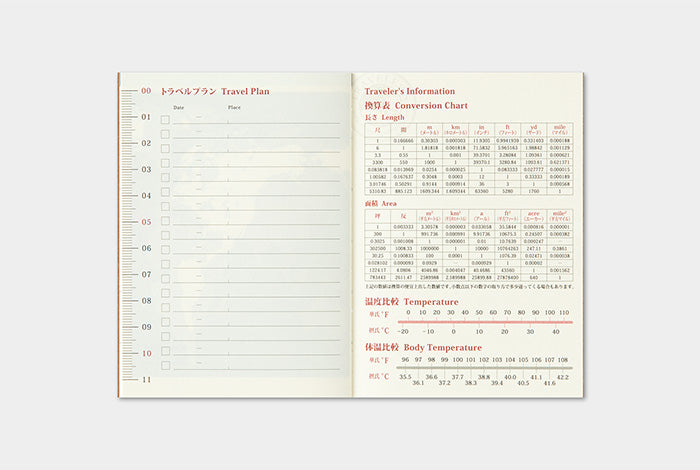 00 トラベルプラン Travel Plan
Date Place
01
02
03
04
05
06
07
08
09
10
11
Traveler's Information
換算表 Conversion Chart
長さ Length
尺 間 m km in ft yd mile
(メートル) (キロメートル) (インチ) (フィート) (ヤード) (マイル)
1 0.166666 0.30303 0.000303 11.9305 0.9941939 0.331403 0.000188
6 1 1.81818 0.001818 71.5832 5.965163 1.98842 0.001129
3.3 0.55 1 0.001 39.3701 3.28084 1.09361 0.000621
3300 550 1000 1 39370.1 3280.84 1093.61 0.621371
0.083818 0.013969 0.0254 0.000025 1 0.083333 0.027777 0.000015
1.00582 0.167637 0.3048 0.0003 12 1 0.33333 0.000189
3.01746 0.50291 0.9144 0.000914 36 3 1 0.000568
5310.83 885.123 1609.344 1.609344 63360 5280 1760 1
面積 Area
坪 反 m² km² a ft² acre mile²
(平方メートル) (平方キロメートル) (アール) (平方フィート) (エーカー) (平方マイル)
1 0.003333 3.30578 0.000003 0.033058 35.5844 0.000816 0.000001
300 1 991.736 0.000991 9.91736 10675.3 0.24507 0.000382
0.3025 0.001008 1 0.000001 0.01 10.7639 0.000247
302500 1008.33 1000000 1 10000 10764263 247.11 0.3861
30.25 0.100833 100 0.0001 1 1076.39 0.02471 0.000038
0.028102 0.000093 0.0929 — 0.000929 1 0.00002
1224.17 4.0806 4046.86 0.004047 40.4686 43560 1 0.001562
783443 2611.47 2589988 2.589988 25899.88 27878400 640 1
上記の数値は換算の便宜上出した数値です。小数点以下の数字の取り方で多少違ってくる場合もあります。
温度比較 Temperature
華氏°F 0 10 20 30 40 50 60 70 80 90 100 110
摂氏°C −20 −10 0 10 20 30 40
体温比較 Body Temperature
華氏°F 96 97 98 99 100 101 102 103 104 105 106 107 108
摂氏°C 35.5 36.6 37.7 38.8 40.0 41.1 42.2
36.1 37.2 38.3 39.4 40.5 41.6